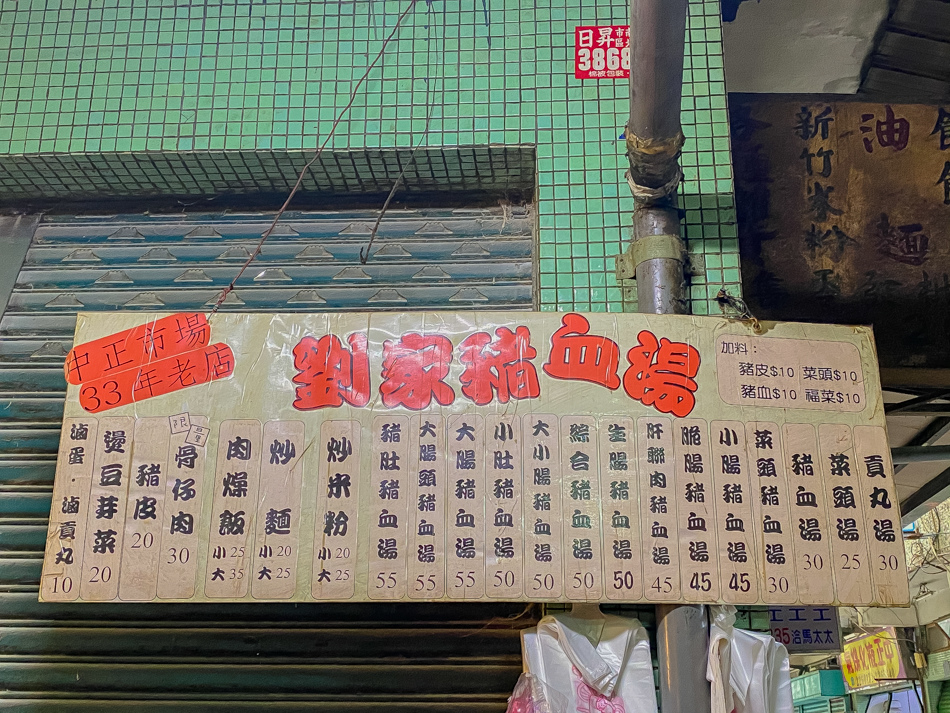 日昇
3868
新竹米粉
油
麵
中正市場
33年老店
劉家豬血湯
加料：
豬皮$10 菜頭$10
豬血$10 福菜$10
貢丸湯 30
菜頭湯 25
豬血湯 30
菜頭豬血湯 30
小腸豬血湯 45
脆腸豬血湯 45
肝聯肉豬血湯 45
生腸豬血湯 50
綜合豬血湯 50
大小腸豬血湯 50
小肚豬血湯 50
大腸豬血湯 55
大腸頭豬血湯 55
豬肚豬血湯 55
炒米粉 小20 大25
炒麵 小20 大25
肉燥飯 小25 大35
限量
骨仔肉 30
豬皮 20
燙豆芽菜 20
滷蛋·滷貢丸 10
洽馬太太